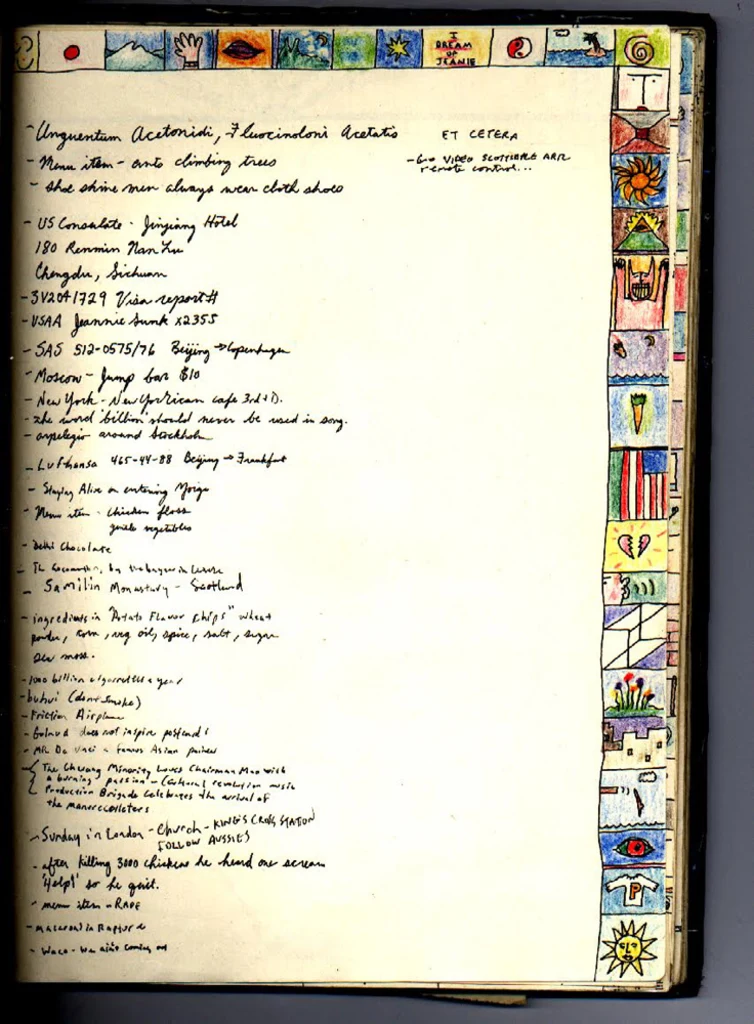 I DREAM OF JEANIE
Unguentum Acetonidi, Fluocinoloni Acetatis
ET CETERA
- Menu item - ants climbing trees
- 6-0 VIDEO
remote control...
- shoe shine men always wear cloth shoes
- US Consulate - Jinjiang Hotel
180 Renmin Nan Lu
Chengdu, Sichuan
- 3V2041729 Visa report #
- USAA Jeannie Sunk x2355
- SAS 512-0575/76 Beijing → Copenhagen
- Moscow - Jump bar $10
- New York - New Yorican cafe 3rd + D.
- the word 'billion' should never be used in song.
- arpelegio around Stockholm
- Lufthansa 465-44-88 Beijing → Frankfurt
- Staying Alive on entering
- Menu item - chicken floss
vegetables
- Delhi Chocolate
- The
- Samilin Monastary - Scotland
- ingredients in "Potato Flavor Chips" wheat
powder, corn, veg oil, spice, salt, sugar
sea moss.
- 1000 billion cigarettes a year
- buhui (dont smoke)
- Friction Airplane
- does not inspire postcards
- MR Da Vinci a famous Asian painter
- The Chuang Minority Loves Chairman Mao with
a burning passion - Cultural revolution music
Production Brigade Celebrates the arrival of
the manure collectors
- Sunday in London - Church - KINGS CROSS STATION
FOLLOW AUSSIES
- after killing 3000 chickens he heard one scream
'Help!' so he quit.
- menu item - RAPE
- macaroni in
- Waco - We ain't coming out
P